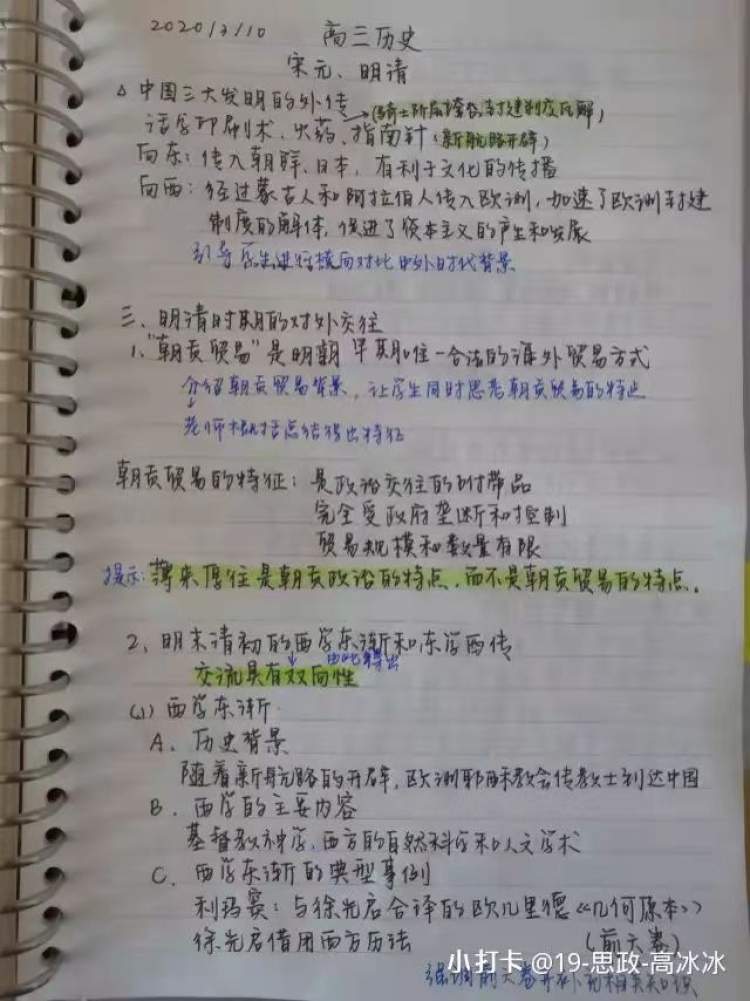 2020/3/10 高三历史
宋元、明清
△ 中国三大发明的外传
(骑士阶层垮台封建制度瓦解)
活字印刷术、火药、指南针(新航路开辟)
向东:传入朝鲜、日本,有利于文化的传播
向西:经过蒙古人和阿拉伯人传入欧洲,加速了欧洲封建
制度的解体,促进了资本主义的产生和发展
引导学生进行横向对比中外时代背景
三、明清时期的对外交往
1、"朝贡贸易"是明朝早期唯一合法的海外贸易方式
介绍朝贡贸易背景,让学生同时思考朝贡贸易的特点
↓
老师根据总结得出特征
朝贡贸易的特征:是政治交往的附带品
完全受政府垄断和控制
贸易规模和数量有限
提示:薄来厚往是朝贡政治的特点,而不是朝贡贸易的特点。
2、明末清初的西学东渐和东学西传
↓ 由此得出
交流具有双向性
(1) 西学东渐
A、历史背景
随着新航路的开辟,欧洲耶稣教会传教士到达中国
B、西学的主要内容
基督教神学、西方的自然科学和人文学术
C、西学东渐的典型事例
利玛窦:与徐光启合译的欧几里德《几何原本》
徐光启借用西方历法 (前六卷)
强调前六卷并补充相关知识
小打卡 @19-思政-高冰冰